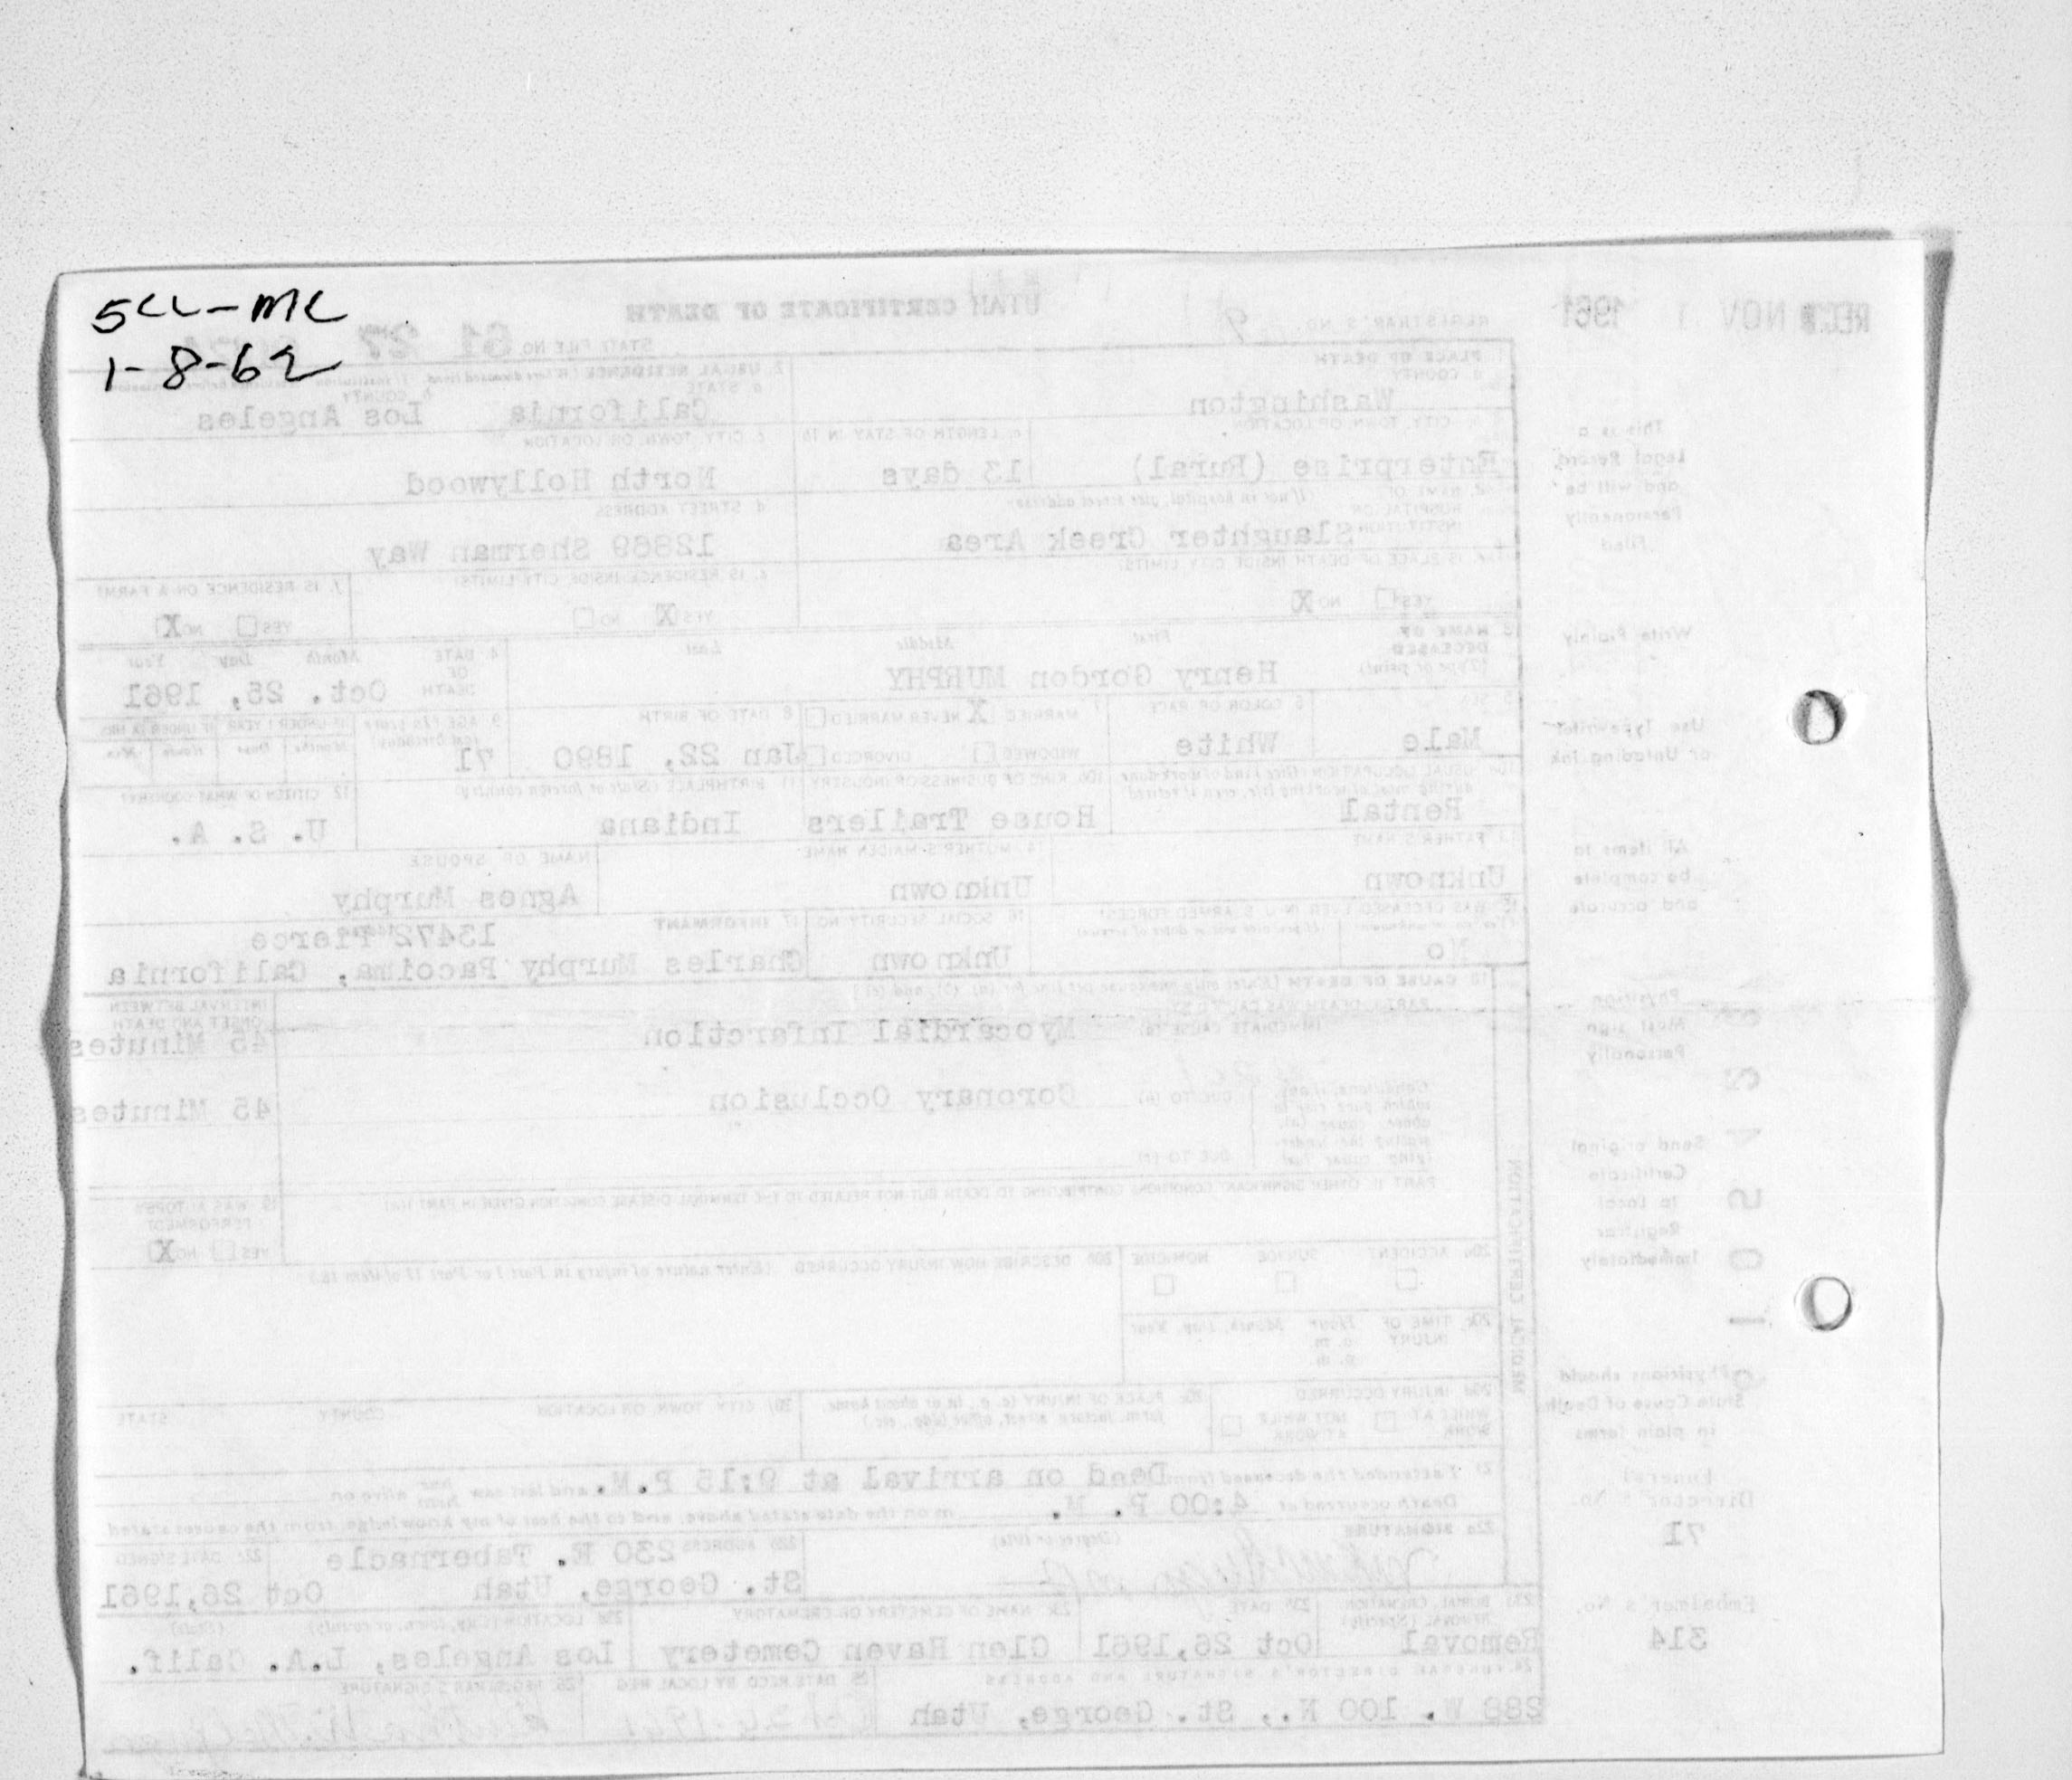 5CC-MC
1-8-62
REC'D NOV 1 1961
UTAH CERTIFICATE OF DEATH
REGISTRAR'S NO. 9
STATE FILE NO. 61 27
1. PLACE OF DEATH
a. COUNTY
Washington
2. USUAL RESIDENCE
a. STATE
California
b. COUNTY
Los Angeles
b. CITY, TOWN, OR LOCATION
Enterprise (Rural)
c. LENGTH OF STAY IN 1b
13 days
c. CITY, TOWN, OR LOCATION
North Hollywood
d. NAME OF HOSPITAL OR INSTITUTION (If not in hospital, give street address)
Slaughter Creek Area
d. STREET ADDRESS
12869 Sherman Way
e. IS PLACE OF DEATH INSIDE CITY LIMITS?
YES NO X
e. IS RESIDENCE INSIDE CITY LIMITS?
YES X NO
f. IS RESIDENCE ON A FARM?
YES NO X
3. NAME OF DECEASED (Type or print)
First Middle Last
Henry Gordon MURPHY
4. DATE OF DEATH
Month Day Year
Oct. 25, 1961
5. SEX
Male
6. COLOR OR RACE
White
7. MARRIED X NEVER MARRIED
WIDOWED DIVORCED
8. DATE OF BIRTH
Jan 22, 1890
9. AGE (In years last birthday)
71
IF UNDER 1 YEAR IF UNDER 24 HRS
Months Days Hours Min.
10a. USUAL OCCUPATION (Give kind of work done during most of working life, even if retired)
Rental
10b. KIND OF BUSINESS OR INDUSTRY
House Trailers
11. BIRTHPLACE (State or foreign country)
Indiana
12. CITIZEN OF WHAT COUNTRY?
U. S. A.
13. FATHER'S NAME
Unknown
14. MOTHER'S MAIDEN NAME
Unknown
NAME OF SPOUSE
Agnes Murphy
15. WAS DECEASED EVER IN U. S. ARMED FORCES?
No
16. SOCIAL SECURITY NO.
Unknown
17. INFORMANT
13472 Pierce
Charles Murphy Pacoima, California
18. CAUSE OF DEATH (Enter only one cause per line for (a), (b), and (c))
PART I. DEATH WAS CAUSED BY:
IMMEDIATE CAUSE (a) Myocardial Infarction
INTERVAL BETWEEN ONSET AND DEATH
45 Minutes
Conditions, if any, which gave rise to above cause (a), stating the underlying cause last.
DUE TO (b) Coronary Occlusion
45 Minutes
DUE TO (c)
PART II. OTHER SIGNIFICANT CONDITIONS CONTRIBUTING TO DEATH BUT NOT RELATED TO THE TERMINAL DISEASE CONDITION GIVEN IN PART I(a)
19. WAS AUTOPSY PERFORMED?
YES NO X
20a. ACCIDENT SUICIDE HOMICIDE
20b. DESCRIBE HOW INJURY OCCURRED. (Enter nature of injury in Part I or Part II of item 18.)
20c. TIME OF INJURY Hour Month, Day, Year
a. m.
p. m.
20d. INJURY OCCURRED
WHILE AT WORK NOT WHILE AT WORK
20e. PLACE OF INJURY (e. g., in or about home, farm, factory, street, office bldg., etc.)
20f. CITY, TOWN, OR LOCATION COUNTY STATE
MEDICAL CERTIFICATION
21. I attended the deceased from Dead on arrival at 9:15 P.M. and last saw her him alive on
Death occurred at 4:00 P. M. m on the date stated above, and to the best of my knowledge, from the causes stated.
22a. SIGNATURE (Degree or title)
22b. ADDRESS 230 E. Tabernacle
St. George, Utah
22c. DATE SIGNED
Oct 26,1961
23a. BURIAL, CREMATION, REMOVAL (Specify)
Removal
23b. DATE
Oct 26,1961
23c. NAME OF CEMETERY OR CREMATORY
Glen Haven Cemetery
23d. LOCATION (City, town, or county) (State)
Los Angeles, L.A. Calif.
24. FUNERAL DIRECTOR'S SIGNATURE AND ADDRESS
288 W. 100 N., St. George, Utah
25. DATE REC'D BY LOCAL REG.
26. REGISTRAR'S SIGNATURE
This is a
Legal Record,
and will be
Permanently
Filed
Write Plainly
Use Typewriter
or Unfading Ink
All items to
be complete
and accurate
Physician
Must sign
Personally
Send original
Certificate
to Local
Registrar
Immediately
Physicians should
State Cause of Death
in plain terms
Funeral
Director's No.
71
Embalmer's No.
314